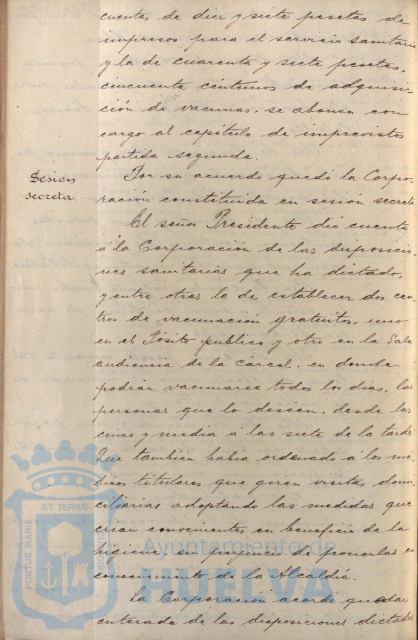 cuenta, de diez y siete pesetas de
impresos para el servicio sanitario
y la de cuarenta y siete pesetas,
cincuenta céntimos de adquisi-
ción de vacunas, se abonen con
cargo al capítulo de imprevistos
partida segunda.
Sesion
secreta
Por su acuerdo quedó la Corpo-
ración constituida en sesión secreta
El señor Presidente dió cuenta
á la Corporación de las disposicio-
nes sanitarias que ha dictado,
y entre otras la de establecer dos cen-
tros de vacunación gratuitos, uno
en el Pósito público y otro en la Sala
audiencia de la carcel, en donde
podrán vacunarse todos los dias, las
personas que lo deseen, desde las
cinco y media á las siete de la tarde
Que tambien habia ordenado á los mé-
dicos titulares que giren visitas domi-
ciliarias adoptando las medidas que
crean convenientes en beneficio de la
higiene sin perjuicio de ponerlas en
conocimiento de la Alcaldía.
La Corporación acordó quedar
enterada de las disposiciones dictadas
PORTUS MARIS ET TERRAE
Ayuntamiento de
HUELVA